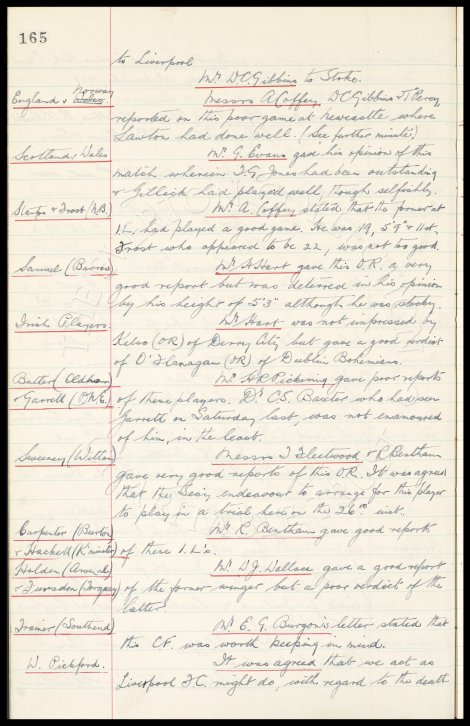 165
to Liverpool
Mr. D.C. Gibbins to Stoke.
England v Norway Wales.
Messrs A. Coffey, D.C. Gibbins & T. Percy
reported on this poor game at Newcastle where
Lawton had done well. (See further minute).
Scotland v Wales
Mr. G. Evans gave his opinion of this
match wherein T.G. Jones had been outstanding
& Gillick had played well, though selfishly.
& Frost (N.B.)
Mr. A. Coffey stated that the former at
I.L. had played a good game. He was 19, 5'9" & 11st.
Frost who appeared to be 22, was not too good.
Samuel (Barrow)
Mr. H. Hart gave this O.R. a very
good report but was deterred in his opinion
by his height of 5'3" although he was stocky.
Irish Players.
Mr. Hart was not impressed by
Kelso (OR) of Derry City but gave a good verdict
of O'Flanagan (OR) of Dublin Bohemians.
Butler (Oldham)
& Garrett (P.N.E.)
Mr. A.R. Pickering gave poor reports
of these players. Dr. C.S. Baxter who had seen
Garrett on Saturday last, was not enamoured
of him, in the least.
Sweeney (Witton)
Messrs J. Fleetwood & R. Bentham
gave very good reports of this O.R. It was agreed
that the Secy. endeavour to arrange for this player
to play in a trial here on the 26th inst.
Carpenter (Burton)
& Hackett (K'minster)
Mr. R. Bentham gave good reports
of these I.L's.
Holden (Arsenal)
& Fursdon (Torquay)
Mr. D.J. Wallace gave a good report
of the former winger but a poor verdict of the
latter.
Trainer (Southend)
Mr. E.G. Burgon's letter stated that
this C.F. was worth keeping in mind.
W. Pickford.
It was agreed that we act as
Liverpool F.C. might do, with regard to the death